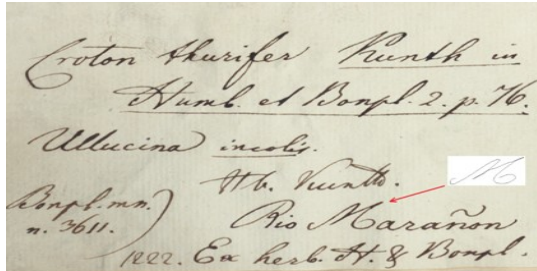 Croton thurifer Kunth in
Humb. et Bonpl. 2. p. 76.
Ullucina incolis.
M
Hb. Kunth.
Bonpl. mn.
n. 3611.
Rio Marañon
1222. Ex herb. H. & Bonpl.